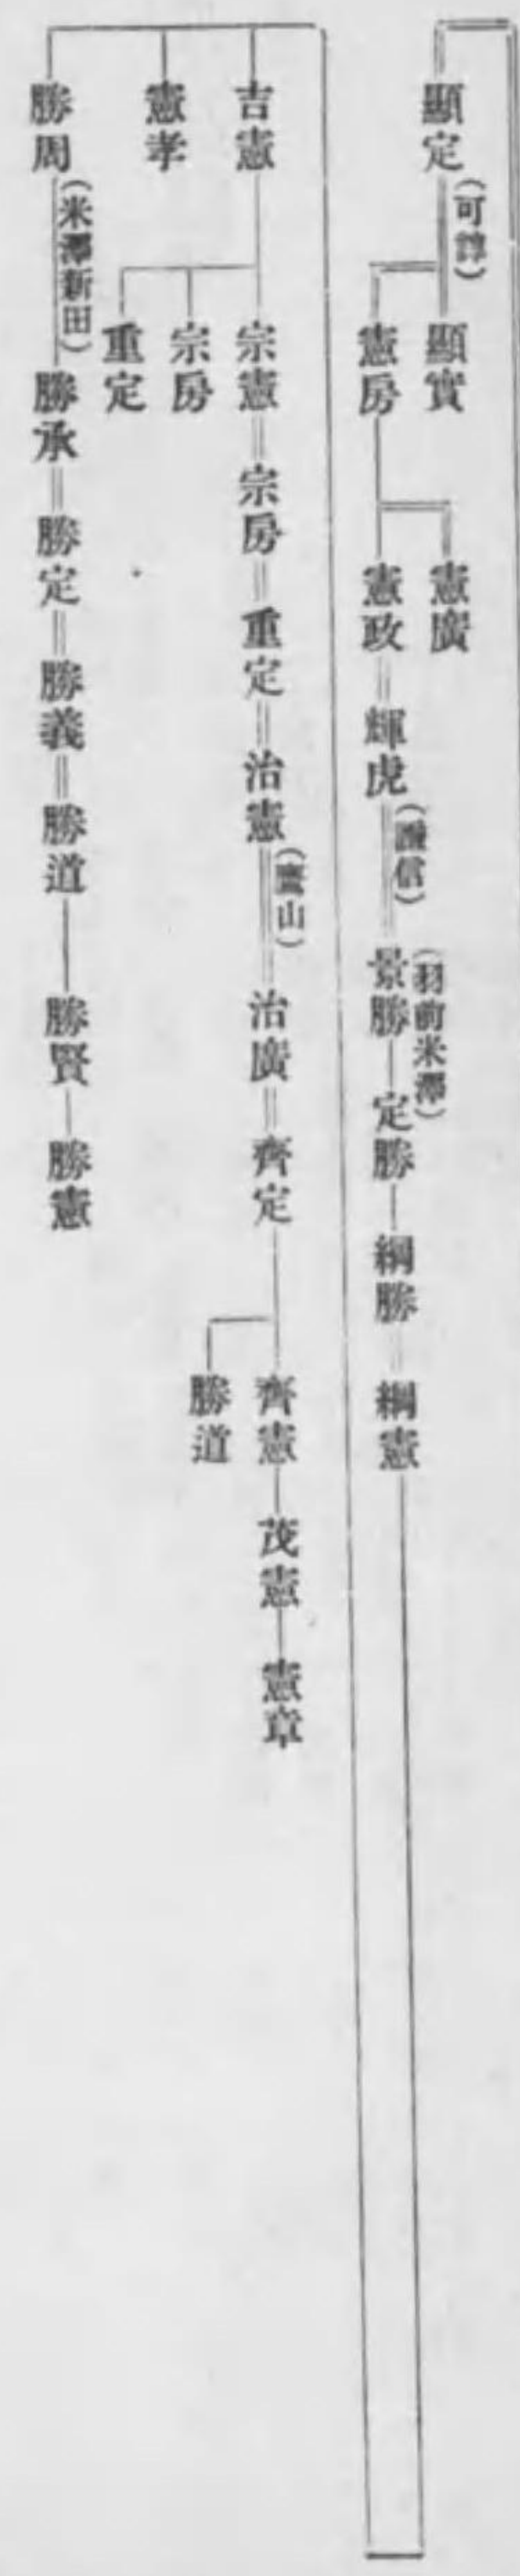 顯定(可諄)顯實
憲房
憲廣
憲政 輝虎(謙信)景勝(羽前米澤)定勝 綱勝 綱憲
吉憲 宗憲 宗房 重定 治憲(鷹山)治廣 齊定 齊憲 茂憲 憲章
宗房
重定
勝道
憲孝
勝周(米澤新田)勝承 勝定 勝義 勝道 勝賢 勝憲